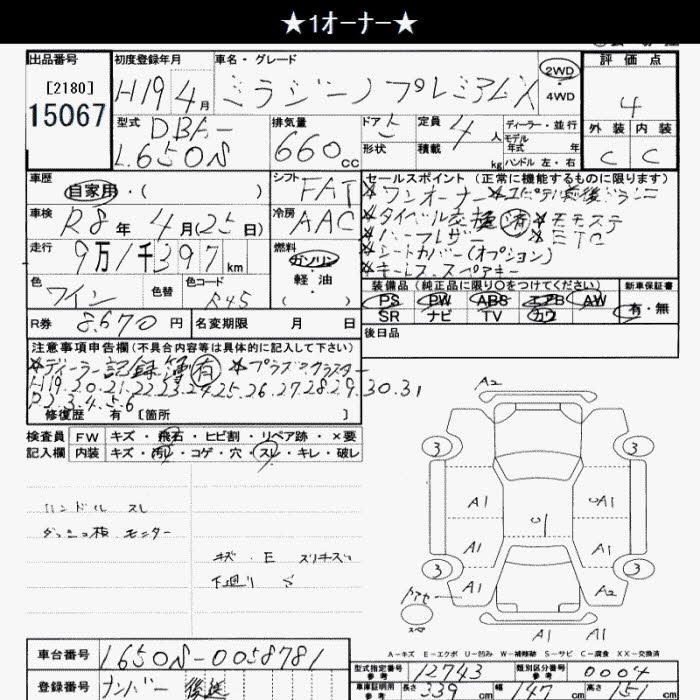 ★1オーナー★
出品番号 初度登録年月 車名・グレード 評価点
[2180] H19 4月 ミラジーノ プレミアムX 2WD 4
15067 4WD
型式 DBA- 排気量 ドア 5 定員 4人 ディーラー・並行 外装 内装
L650S 660cc 形状 積載 kg モデル年式 年 C C
ハンドル 左・右
車歴 シフト FAT セールスポイント (正常に機能するものに限ります)
自家用・( ) ※ワンオーナー
車検 R8年 4月(25日) 冷房 AAC ※タイベル交換済 ※モモステ
走行 9万1千397km 燃料 ※ETC
ガソリン・軽油・( ) ※シートカバー(オプション)
※キーレス、スペアキー
色 ワイン 色替 色コード R45 装備品 (純正品に限り○をつけてください) 新車保証書
PS PW ABS エアB AW 有・無
R券 8,670円 名変期限 月 日 SR ナビ TV カワ
後日品
注意事項申告欄(不具合内容等は具体的に記入して下さい)
※ディーラー記録簿有 ※プラズマクラスター
H19.20.21.22.23.24.25.26.27.28.29.30.31
R2.3.4.5.6
修復歴 有 [箇所 ]
検査員 FW キズ・飛石・ヒビ割・リペア跡・×要
記入欄 内装 キズ・汚レ・コゲ・穴・スレ・キレ・破レ
ハンドル スレ
モニター
キズ・E スリキズ
下廻り S
A2
3 3
A1 A1
U1
A1 A1
3 3
A1 A2
スペア A1 A1
A-キズ E-エクボ U-凹み W-補修跡 S-サビ C-腐食 XX-交換済
車台番号 L650S-0058781 型式指定番号 参考 12743 類別区分番号 参考 0004
登録番号 ナンバー 後送 車庫証明用 参考 長さ 339cm 幅 147cm 高さ 151cm